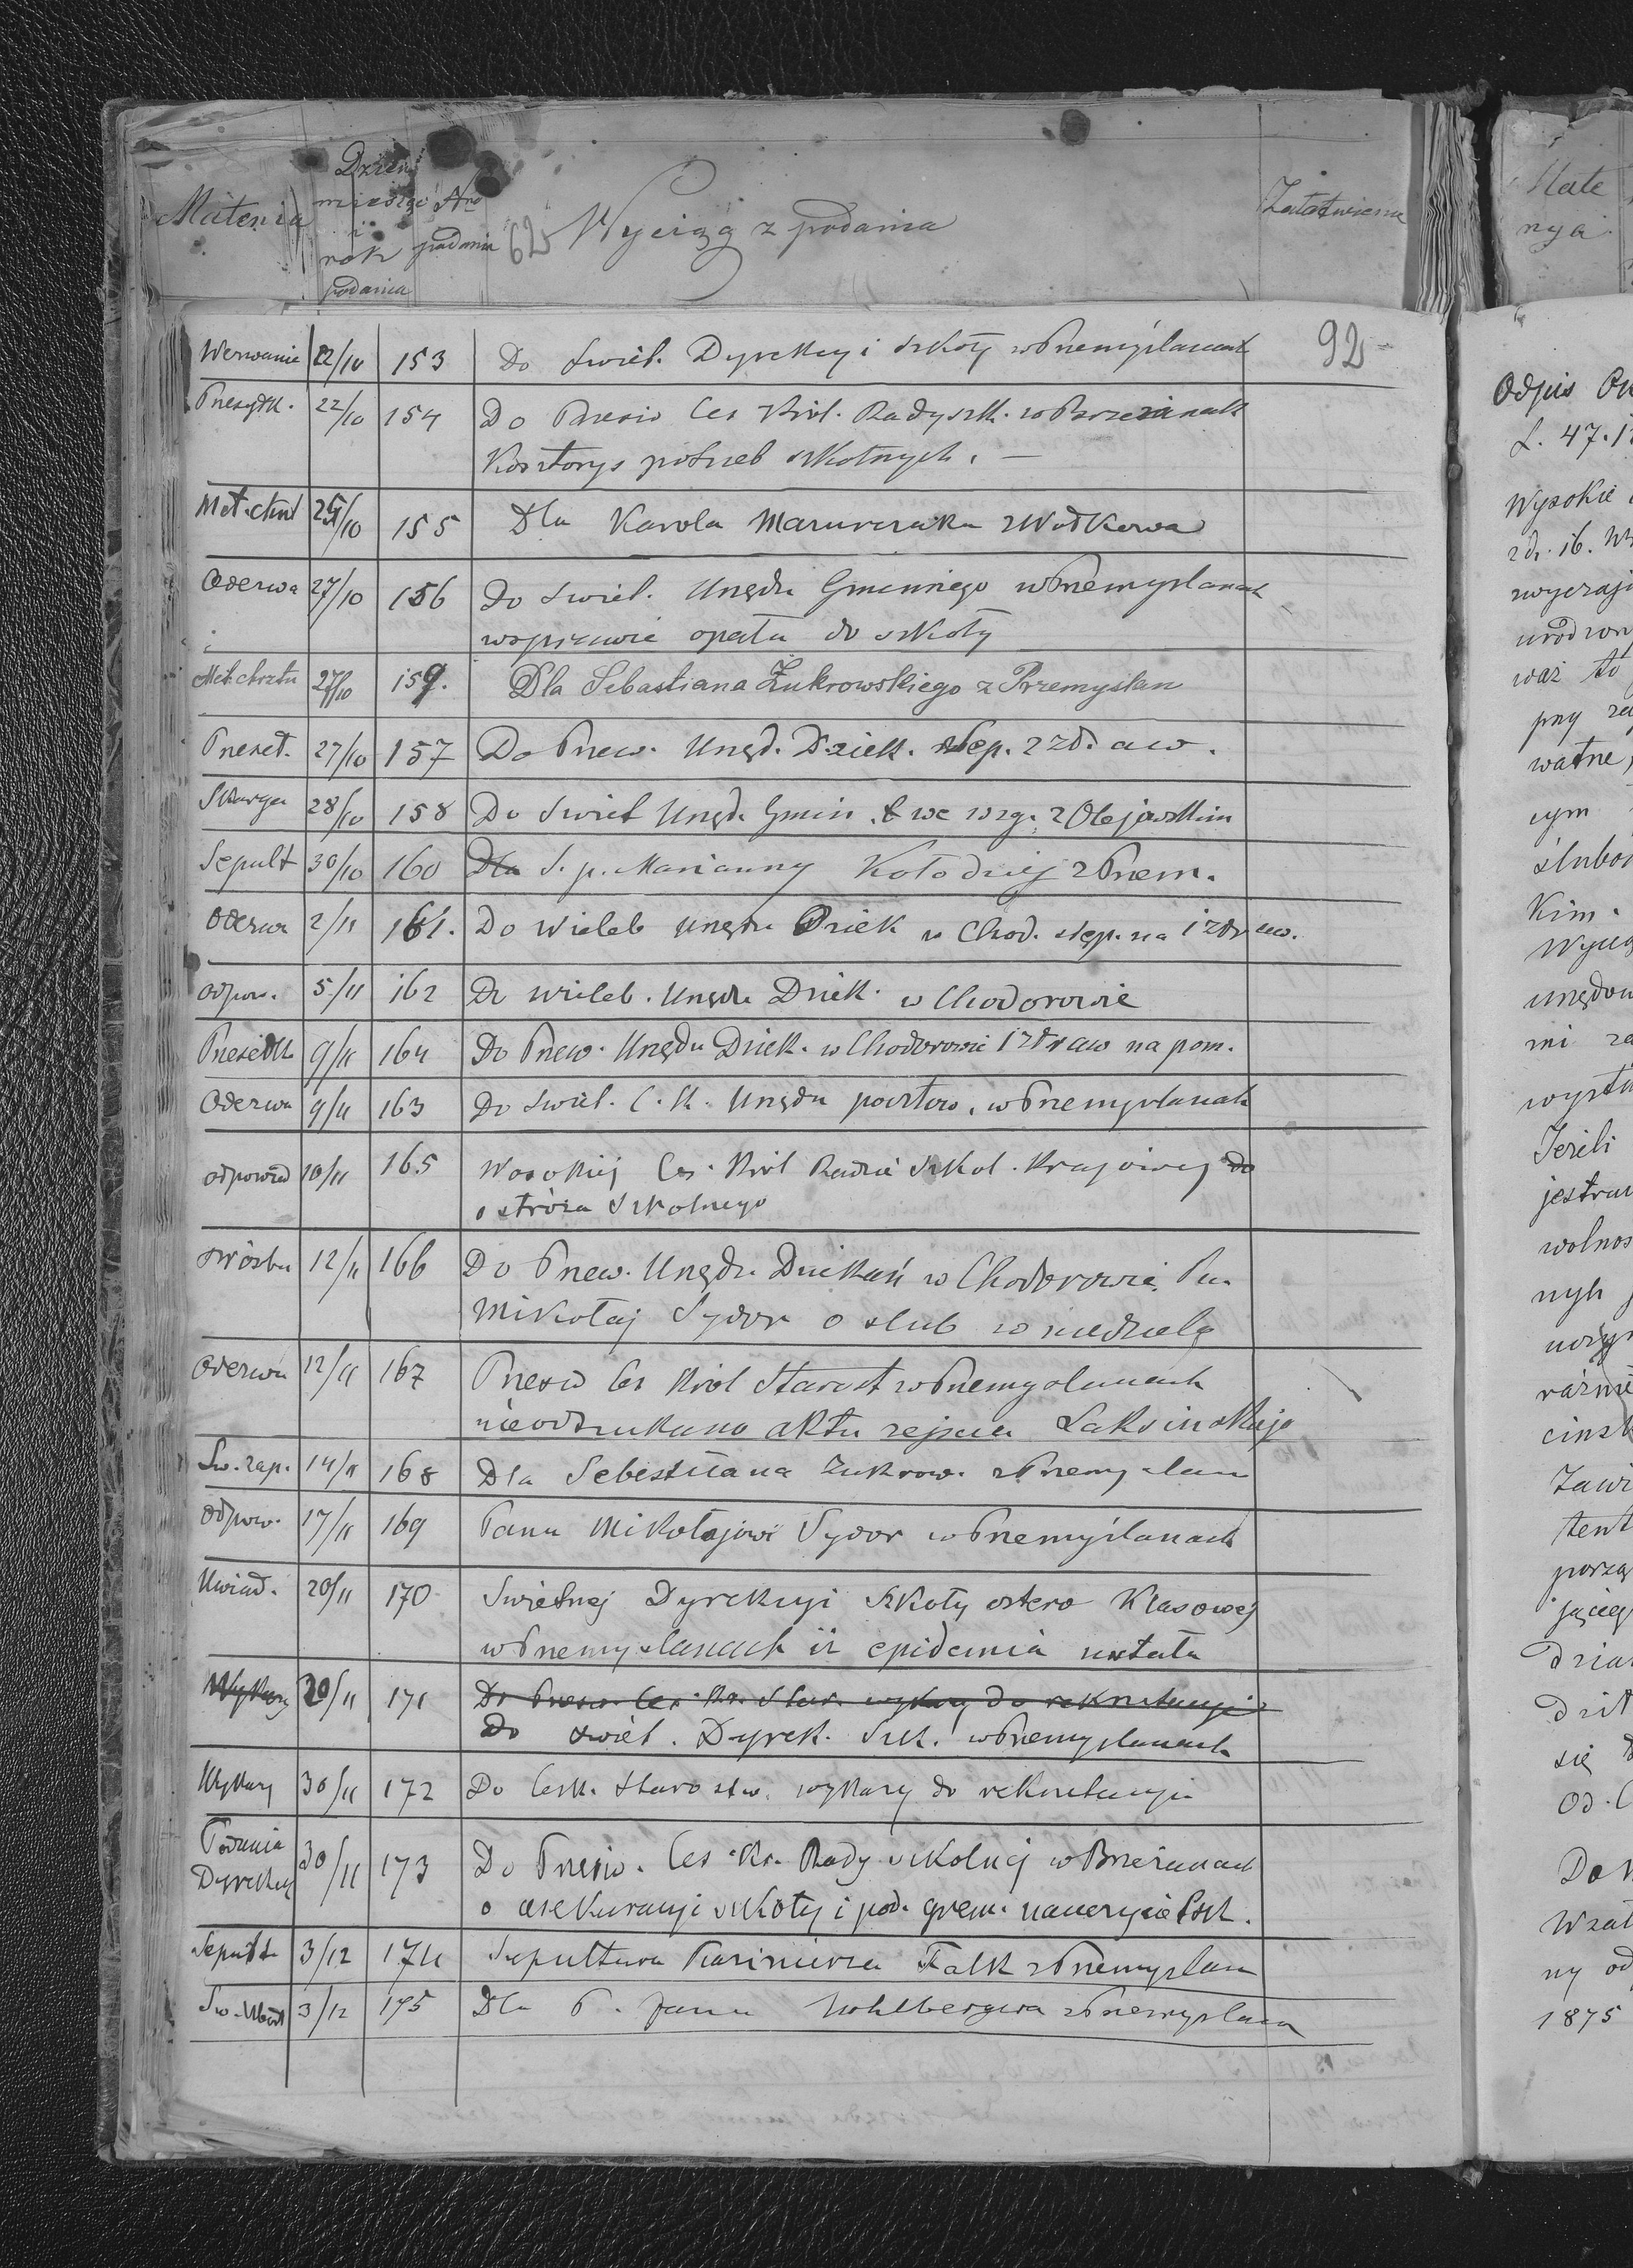 Materia
Dzień
miesiąc
i
rok
podania
Nro
podania
62
Wyciąg z podania
Załatwienie
92
Wezwanie 22/10 153 Do Swiet. Dyrekcyi szkoły w Przemyślanach
Przesyłk. 22/10 154 Do Przesw Ces Król. Rady szk. w Brzeżanach
Kosztorys potrzeb szkolnych. —
Met. chrzt 25/10 155 Dla Karola z Wołkowa
Odezwa 27/10 156 Do swiet. Urzędu Gminnego w Przemyslanach
wsprawie opału do szkoły
Met. chrztu 27/10 159. Dla Sebastiana Żukrowskiego z Przemyslan
Przeseł. 27/10 157 Do Przew. Urzęd. Dziek. 2 zł. aw.
Skarga 28/10 158 Do Swiet Urzęd. Gmin.
Sepult 30/10 160 Dla S. p. Marianny Kołodziej z Przem.
Odezwa 2/11 161. Do Wieleb Urzędu Dziek w Chod. na 1 zł aw.
odpow. 5/11 162 Do wieleb. Urzędu Dziek. w Chodorowie
Przesełk 9/11 164 Do Przew. Urzędu Dziek. w Chodorowie 1 zł aw na pom.
Odezwa 9/11 163 Do swiet. C. K. Urzędu pocztow. w Przemyslanach
odpowied 10/11 165 Wysokiej Ces. Król Radzie Szkol. Krajowej do
o stróża Szkolnego
Prośba 12/11 166 Do Przew. Urzędu Dziekań w Chodorowie. Pan
Mikołaj Sydor o slub w niedzielę
Odezwa 12/11 167 Przesw Ces Król Starost w Przemyslanach
nieodszukano aktu zejscia
Sw. zap. 14/11 168 Dla Sebestiana Zukrow. z Przemyslan
Odpow. 17/11 169 Panu Mikołajowi Sydor w Przemyślanach
Uwiad. 20/11 170 Swietnej Dyrekcyi Szkoły cztero Klasowej
w Przemyslanach iż epidemia ustała
Wykazy 20/11 171 Do Przesw. Ces. Kr. Star. wykazy do rekrutacyi
do swiet. Dyrek. Szk. w Przemyslanach
Wykazy 30/11 172 Do Ces K. Starostw. wykazy do rekrutacyi
Podania
Dyrekcyi 30/11 173 Do Przesw. Ces. Kr. Rady szkolnej w Brzeżanach
o asekuracyi szkoły i pod. grem. nauczyciel
Sepult 3/12 174 Sepultura Kazimierza Falk z Przemyslan
3/12 175 Dla P. Jana z Przemyslan
Mate
rya
Odpis
L. 47.
Wysokie
waż to
watne,
Kim.
Jeżeli
wolnos
tent
się
Od. C
Do
ny od
1875